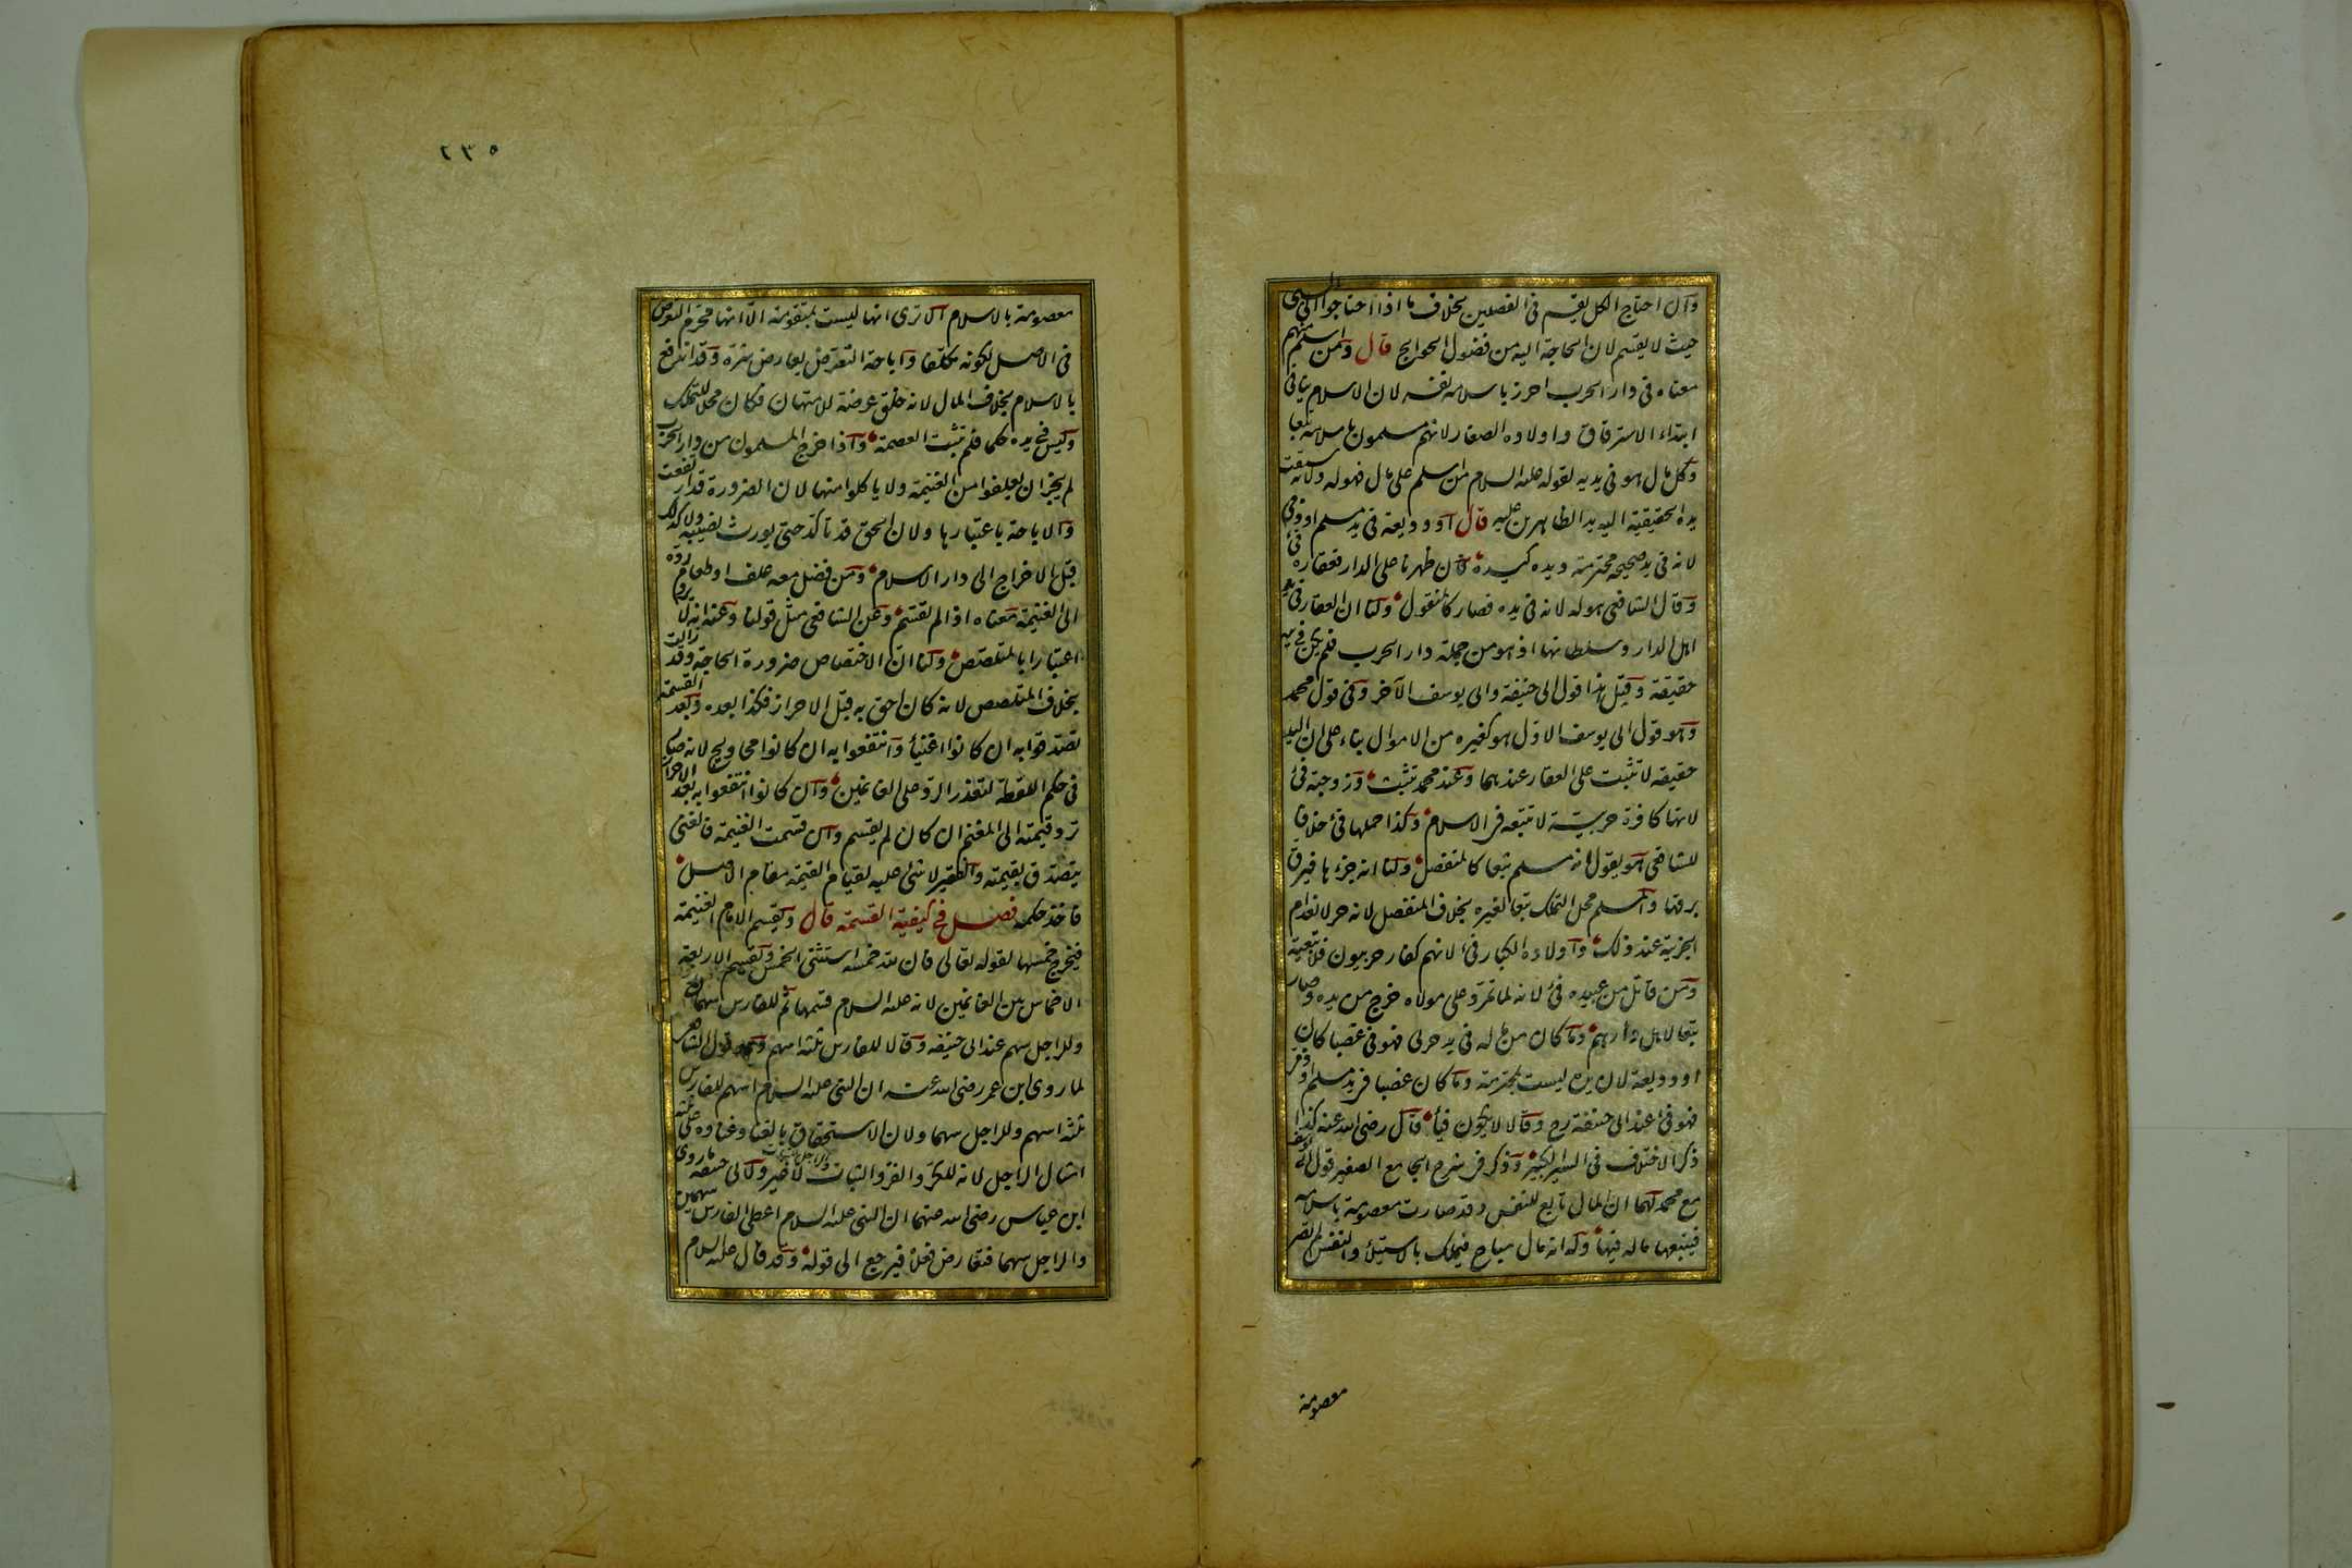 وان احتاج الكل يقسم فى الفصلين بخلاف ما اذا احتاجوا الى السبى
حيث لا يقسم لان الحاجة اليه من فضول الحوايج قال ومن اسلم منهم
معناه فى دار الحرب احرز باسلامه نفسه لان الاسلام ينافى
ابتداء الاسترقاق واولاده الصغار لانهم مسلمون باسلامه تبعا
وكل مال هو فى يديه لقوله عليه السلام من اسلم على مال فهو له ولانه سبقت
يده الحقيقية اليه يد الظاهرين عليه قال او وديعة فى يد مسلم او ذمى
لانه فى يد صحيحة محترمة ويده كيده فان ظهرنا على الدار فعقاره فئ
وقال الشافعى هو له لانه فى يده فصار كالمنقول ولنا ان العقار فى يد
اهل الدار وسلطانها اذ هو من جملة دار الحرب فلم يكن فى يده
حقيقة وقيل هذا قول ابى حنيفة وابى يوسف الآخر وفى قول محمد
وهو قول ابى يوسف الاول هو كغيره من الاموال بناء على ان اليد
حقيقة لا تثبت على العقار عندهما وعند محمد تثبت وزوجته فئ
لانها كافرة حربية لا تتبعه فى الاسلام وكذا حملها فئ خلافا
للشافعى هو يقول انه مسلم تبعا كالمنفصل ولنا انه جزءها فيرق
برقها والمسلم محل التملك تبعا لغيره بخلاف المنفصل لانه حر لانعدام
الجزئية عند ذلك واولاده الكبار فئ لانهم كفار حربيون فلا تبعية
ومن قاتل من عبيده فئ لانه لما تمرد على مولاه خرج من يده وصار
تبعا لاهل دارهم وما كان من مال له فى يد حربى فهو فئ غصبا كان
او وديعة لان يده ليست بمحترمة وما كان غصبا فى يد مسلم او ذمى
فهو فئ عند ابى حنيفة رح وقالا لا يكون فيأ قال رضى الله عنه كذا
ذكر الاختلاف فى السير الكبير وذكر فى شرح الجامع الصغير قول ابى يوسف
مع محمد لهما ان المال تابع للنفس وقد صارت معصومة باسلامه
فيتبعها ماله فيها وله انه مال مباح فيملك بالاستيلاء والنفس لم تصر
معصومة
٢٣٥
معصومة بالاسلام الا ترى انها ليست بمتقومة الا انها محرم التعرض
فى الاصل لكونه مكلفا واباحة التعرض بعارض شره وقد اندفع
بالاسلام بخلاف المال لانه خلق عرضة للامتهان فكان محلا للتملك
وليس فى يده حكما فلم تثبت العصمة واذا خرج المسلمون من دار الحرب
لم يجز ان يعلفوا من الغنيمة ولا ياكلوا منها لان الضرورة قد ارتفعت
والاباحة باعتبارها ولان الحق قد تاكد حتى يورث نصيبه ولا كذلك
قبل الاخراج الى دار الاسلام ومن فضل معه علف او طعام رده
الى الغنيمة معناه اذا لم تقسم وعن الشافعى مثل قولنا وعنه انه لا يرد
اعتبارا بالمتلصص ولنا ان الاختصاص ضرورة الحاجة وقد زالت
بخلاف المتلصص لانه كان احق به قبل الاحراز فكذا بعده وبعد القسمة
تصدقوا به ان كانوا اغنياء وانتفعوا به ان كانوا محاويج لانه صار
فى حكم اللقطة لتعذر الرد على الغانمين وان كانوا انتفعوا به بعد الاحراز
ترد قيمته الى المغنم ان كان لم يقسم وان قسمت الغنيمة فالغنى
يتصدق بقيمته والفقير لا شئ عليه لقيام القيمة مقام الاصل
فاخذ حكمه فصل فى كيفية القسمة قال ويقسم الامام الغنيمة
فيخرج خمسها لقوله تعالى فان لله خمسه استثنى الخمس ويقسم الاربعة
الاخماس بين الغانمين لانه عليه السلام قسمها ثم للفارس سهمان
وللراجل سهم عند ابى حنيفة وقالا للفارس ثلثة اسهم وهو قول الشافعى
لما روى ابن عمر رضى الله عنه ان النبى عليه السلام اسهم للفارس
ثلثة اسهم وللراجل سهما ولان الاستحقاق بالغناء وغناؤه على ثلثة
امثال الراجل لانه للكر والفر والثبات والراجل للثبات لا غير ولابى حنيفة ما روى
ابن عباس رضى الله عنهما ان النبى عليه السلام اعطى الفارس سهمين
والراجل سهما فتعارض فعلاه فيرجع الى قوله وقد قال عليه السلام